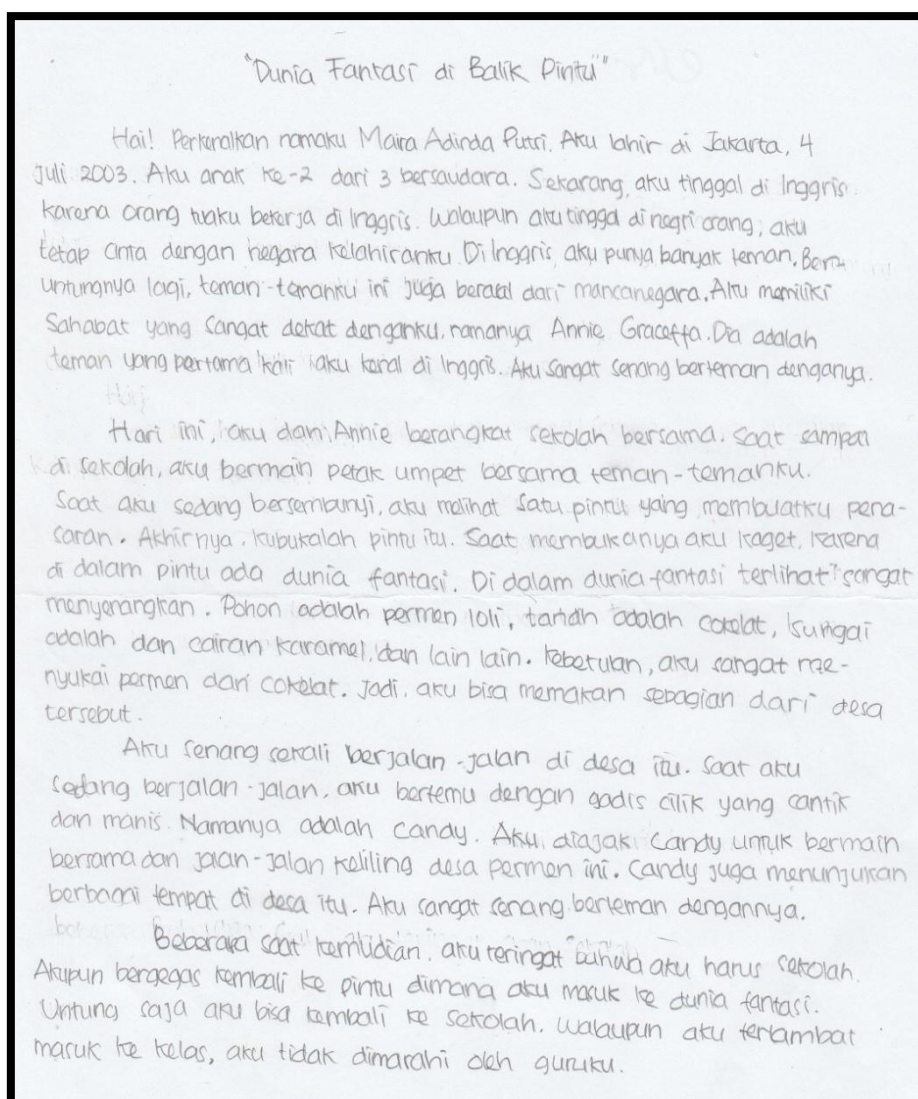 "Dunia Fantasi di Balik Pintu"
Hai! Perkenalkan namaku Maira Adinda Putri. Aku lahir di Jakarta, 4
Juli 2003. Aku anak ke-2 dari 3 bersaudara. Sekarang, aku tinggal di Inggris
karena orang tuaku bekerja di Inggris. Walaupun aku tinggal di negri orang, aku
tetap cinta dengan negara kelahiranku. Di Inggris, aku punya banyak teman. Ber-
untungnya lagi, teman-temanku ini juga berasal dari mancanegara. Aku memiliki
Sahabat yang sangat dekat denganku, namanya Annie Graceffa. Dia adalah
teman yang pertama kali aku kenal di Inggris. Aku sangat senang berteman denganya.
Hari ini, aku dan Annie berangkat sekolah bersama. Saat sampai
di sekolah, aku bermain petak umpet bersama teman-temanku.
Saat aku sedang bersembunyi, aku melihat satu pintu yang membuatku pena-
saran. Akhirnya, kubukalah pintu itu. Saat membukanya aku kaget, karena
di dalam pintu ada dunia fantasi. Di dalam dunia fantasi terlihat sangat
menyenangkan. Pohon adalah permen loli, tanah adalah cokelat, sungai
adalah dan cairan karamel, dan lain lain. Kebetulan, aku sangat me-
nyukai permen dan cokelat. Jadi, aku bisa memakan sebagian dari desa
tersebut.
Aku senang sekali berjalan-jalan di desa itu. Saat aku
sedang berjalan-jalan, aku bertemu dengan gadis cilik yang cantik
dan manis. Namanya adalah Candy. Aku diajak Candy untuk bermain
bersama dan jalan-jalan keliling desa permen ini. Candy juga menunjukan
berbagai tempat di desa itu. Aku sangat senang berteman dengannya.
Beberapa saat kemudian, aku teringat bahwa aku harus sekolah.
Akupun bergegas kembali ke pintu dimana aku masuk ke dunia fantasi.
Untung saja aku bisa kembali ke sekolah. Walaupun aku terlambat
masuk ke kelas, aku tidak dimarahi oleh guruku.